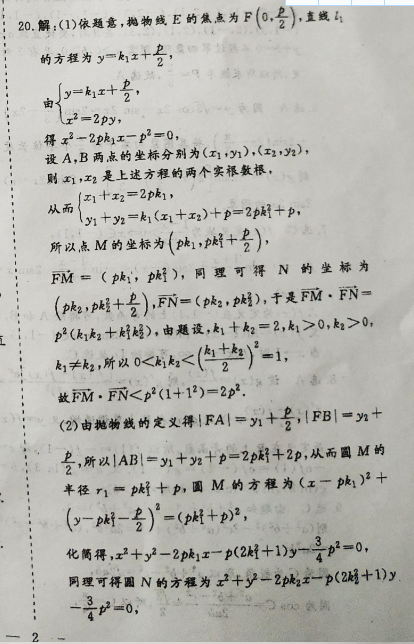 20.解:(1)依题意,抛物线 E 的焦点为 F(0,p/2),直线 l₁
的方程为 y=k₁x+p/2,
由{y=k₁x+p/2,
x²=2py,
得 x²-2pk₁x-p²=0,
设 A,B 两点的坐标分别为(x₁,y₁),(x₂,y₂),
则 x₁,x₂ 是上述方程的两个实根数根,
从而{x₁+x₂=2pk₁,
y₁+y₂=k₁(x₁+x₂)+p=2pk₁²+p,
所以点 M 的坐标为(pk₁,pk₁²+p/2),
→FM=(pk₁,pk₁²),同理可得 N 的坐标为
(pk₂,pk₂²+p/2),→FN=(pk₂,pk₂²),于是→FM·→FN=
p²(k₁k₂+k₁²k₂²),由题设,k₁+k₂=2,k₁>0,k₂>0,
k₁≠k₂,所以 0<k₁k₂<((k₁+k₂)/2)²=1,
故→FM·→FN<p²(1+1²)=2p².
(2)由抛物线的定义得|FA|=y₁+p/2,|FB|=y₂+
p/2,所以|AB|=y₁+y₂+p=2pk₁²+2p,从而圆 M 的
半径 r₁=pk₁²+p,圆 M 的方程为(x-pk₁)²+
(y-pk₁²-p/2)²=(pk₁²+p)²,
化简得,x²+y²-2pk₁x-p(2k₁²+1)y-3/4p²=0,
同理可得圆 N 的方程为 x²+y²-2pk₂x-p(2k₂²+1)y
-3/4p²=0,
— 2 —